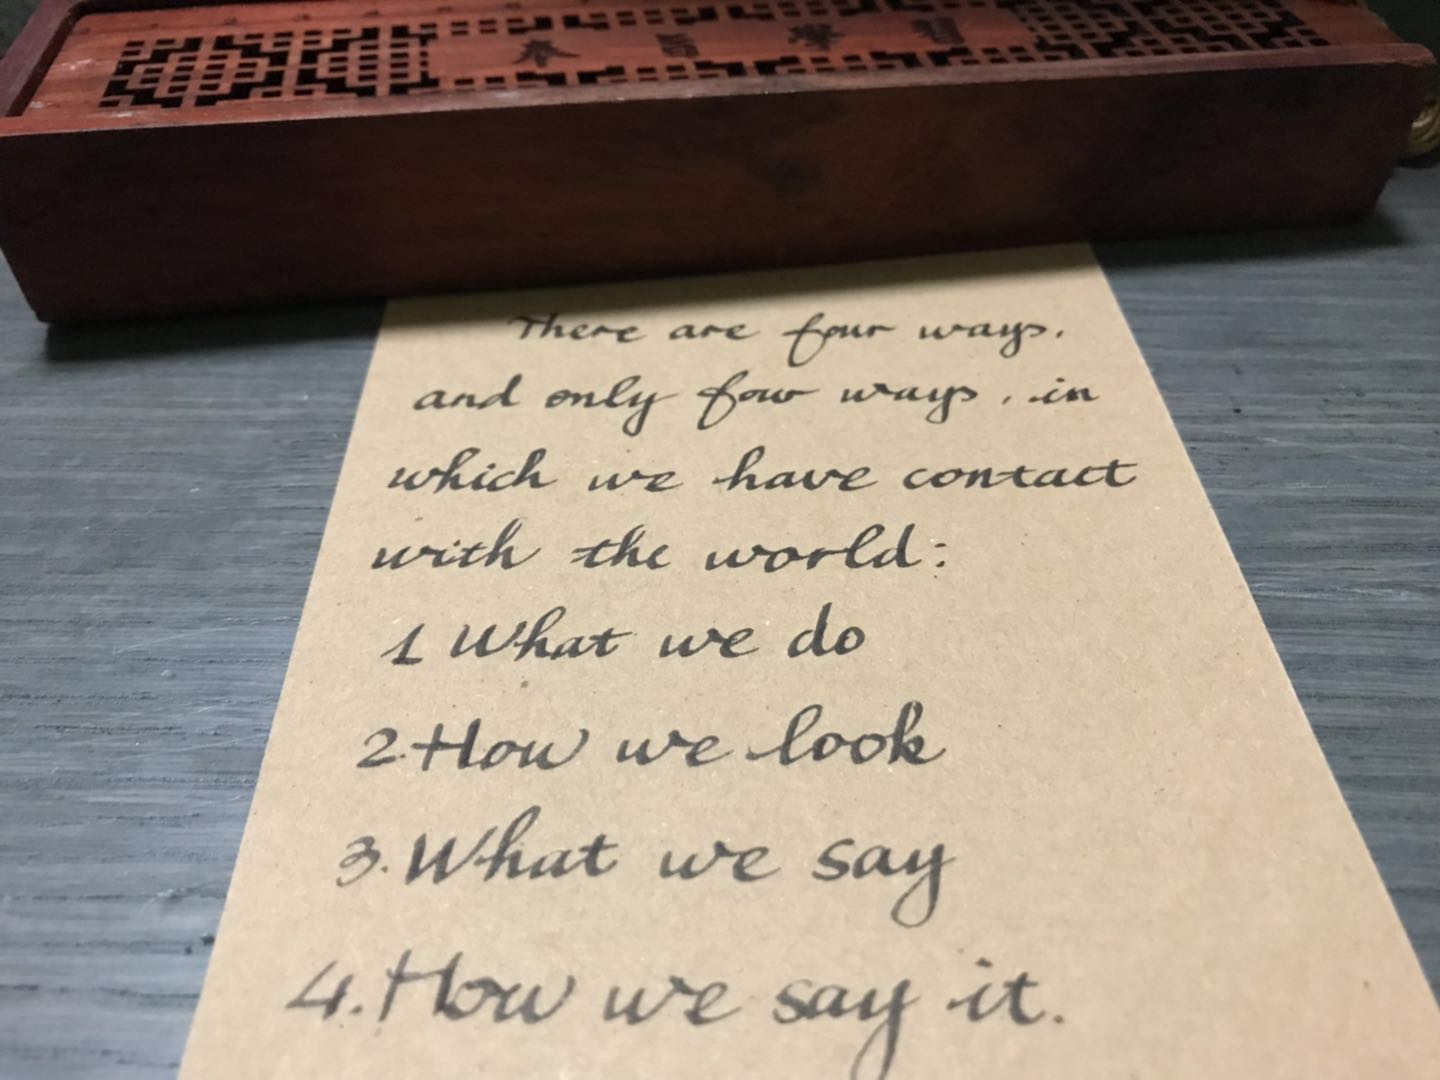 There are four ways.
and only four ways, in
which we have contact
with the world:
1 What we do
2. How we look
3. What we say
4. How we say it.